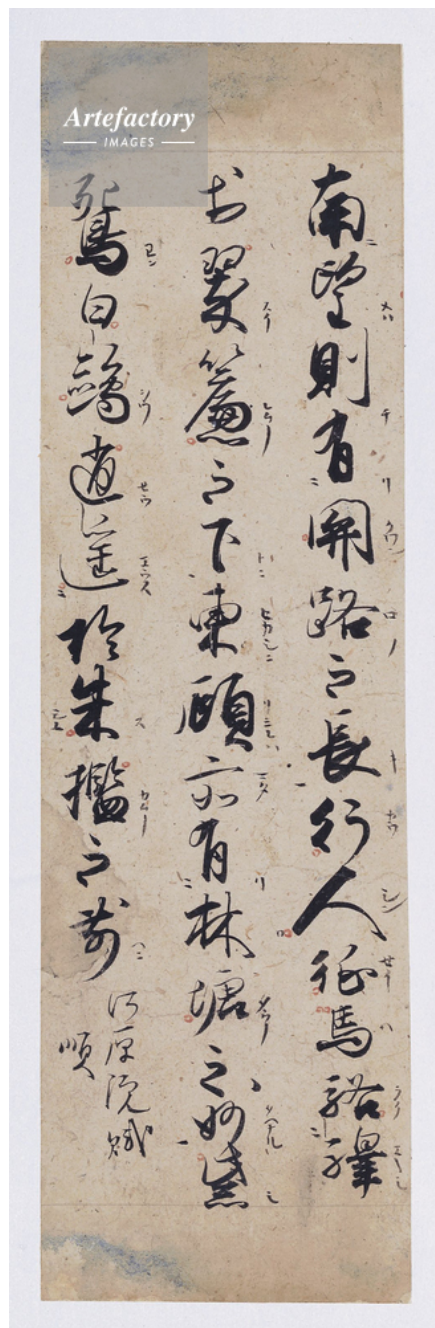 Artefactory
IMAGES
南望則有関路之長行人征馬駱驛
於翠簾之下東顧亦有林塘之妙紫
鴛白鷗逍遥於朱檻之前
河原院賦
順